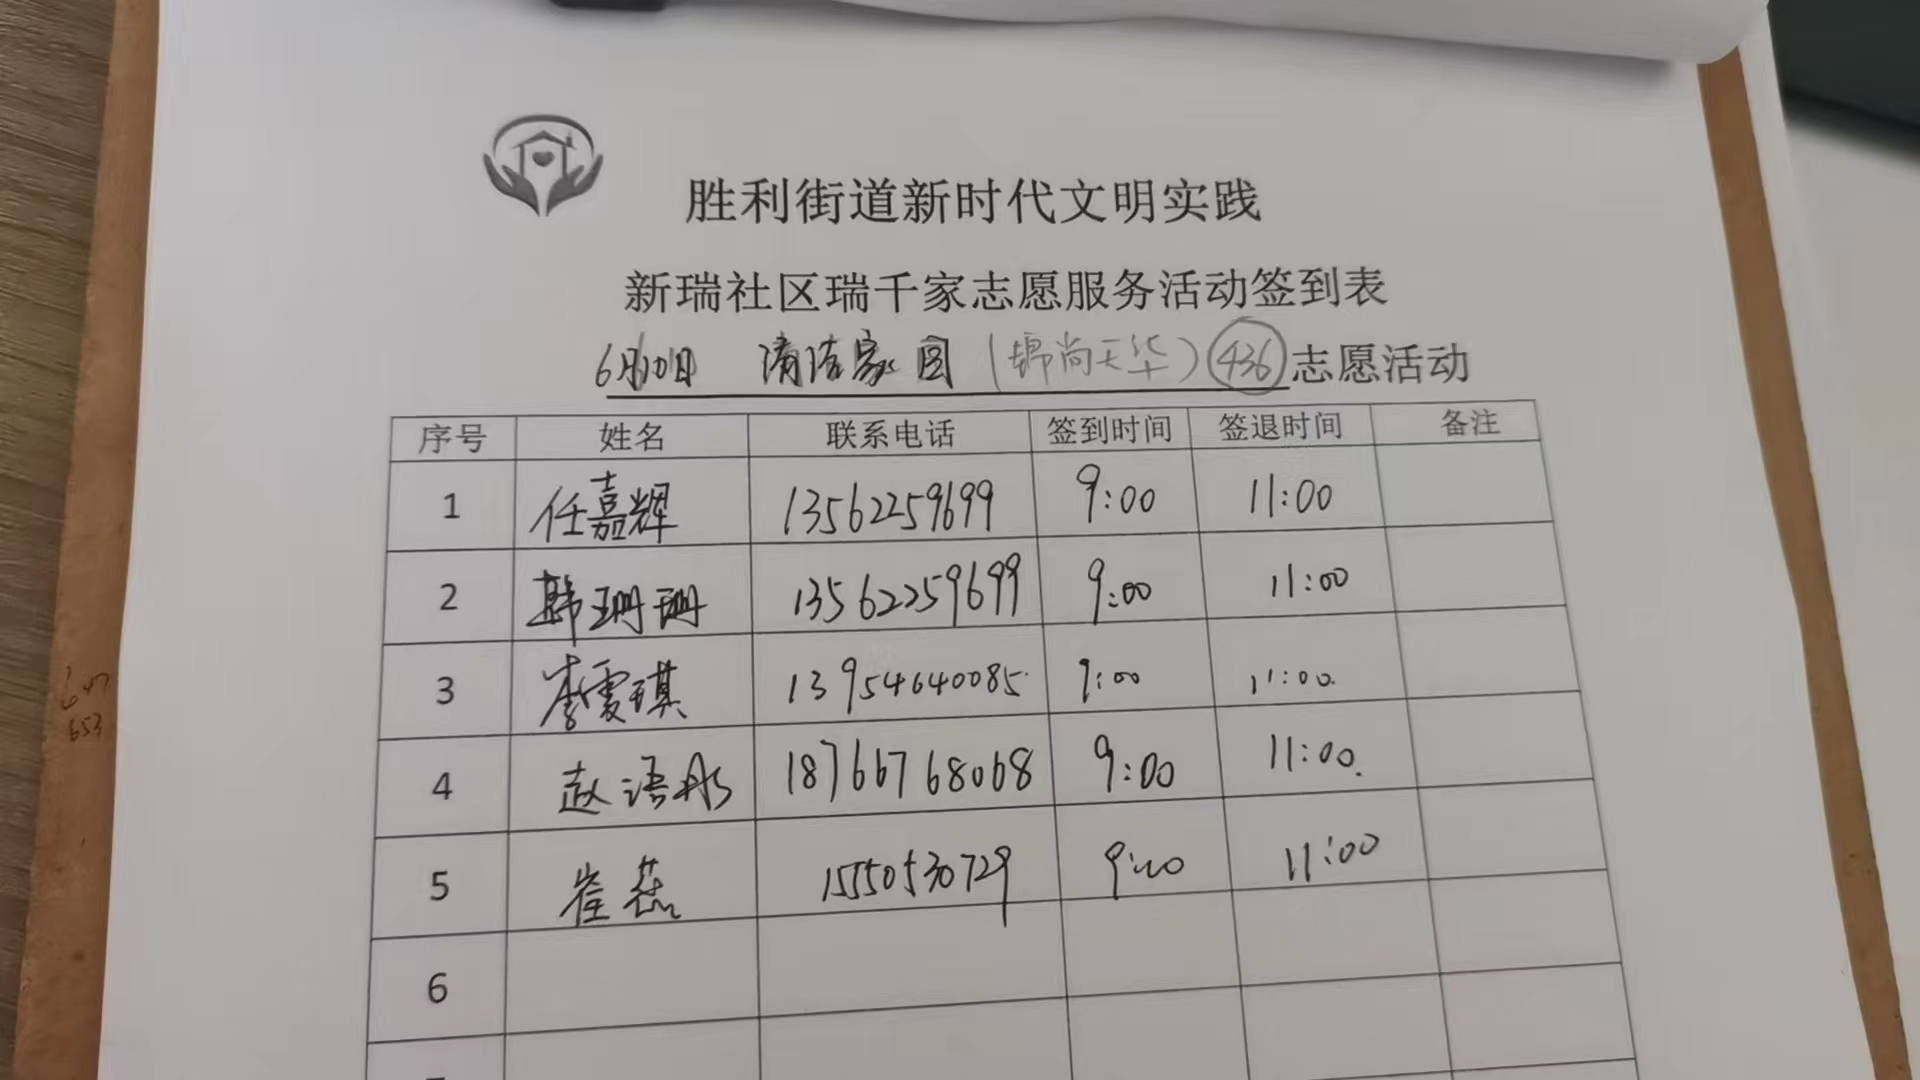 胜利街道新时代文明实践
新瑞社区瑞千家志愿服务活动签到表
6月10日 清洁家园（锦尚天华）436 志愿活动
序号 姓名 联系电话 签到时间 签退时间 备注
1 任嘉辉 13562259699 9:00 11:00
2 韩珊珊 13562259699 9:00 11:00
3 李雯琪 13954640085 9:00 11:00
4 赵语彤 18766768068 9:00 11:00
5 崔蕊 15550530729 9:00 11:00
6
647
653